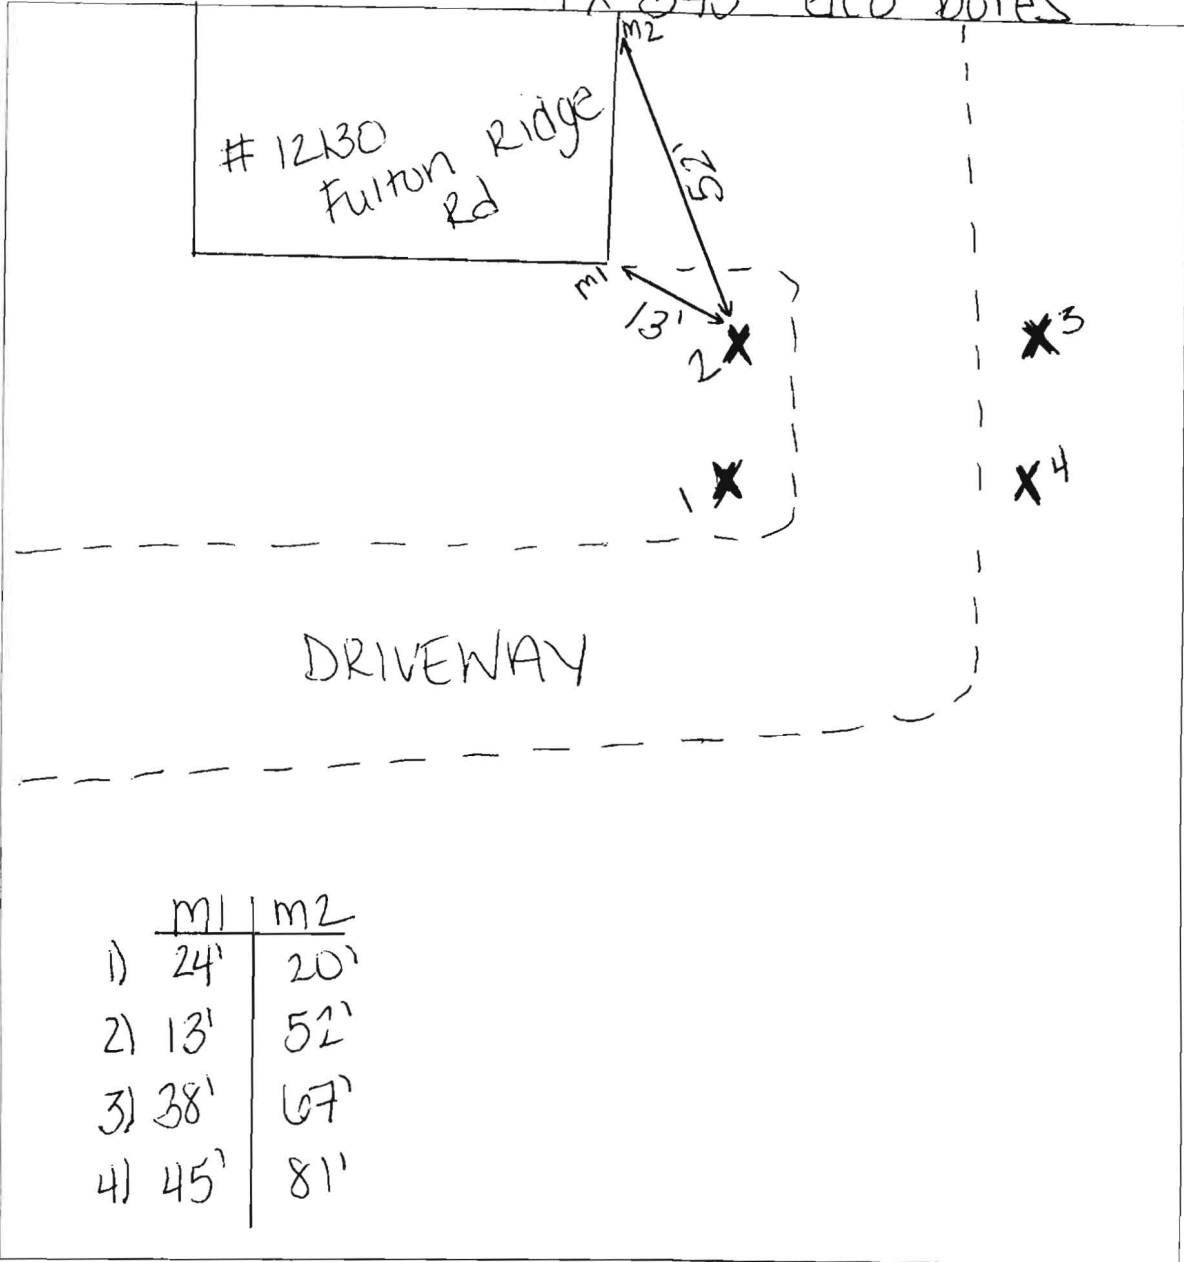 bores
m2
# 12130
Fulton Ridge
Rd
52'
m1
13'
2
3
1
4
DRIVEWAY
m1 m2
1) 24' 20'
2) 13' 52'
3) 38' 67'
4) 45' 81'